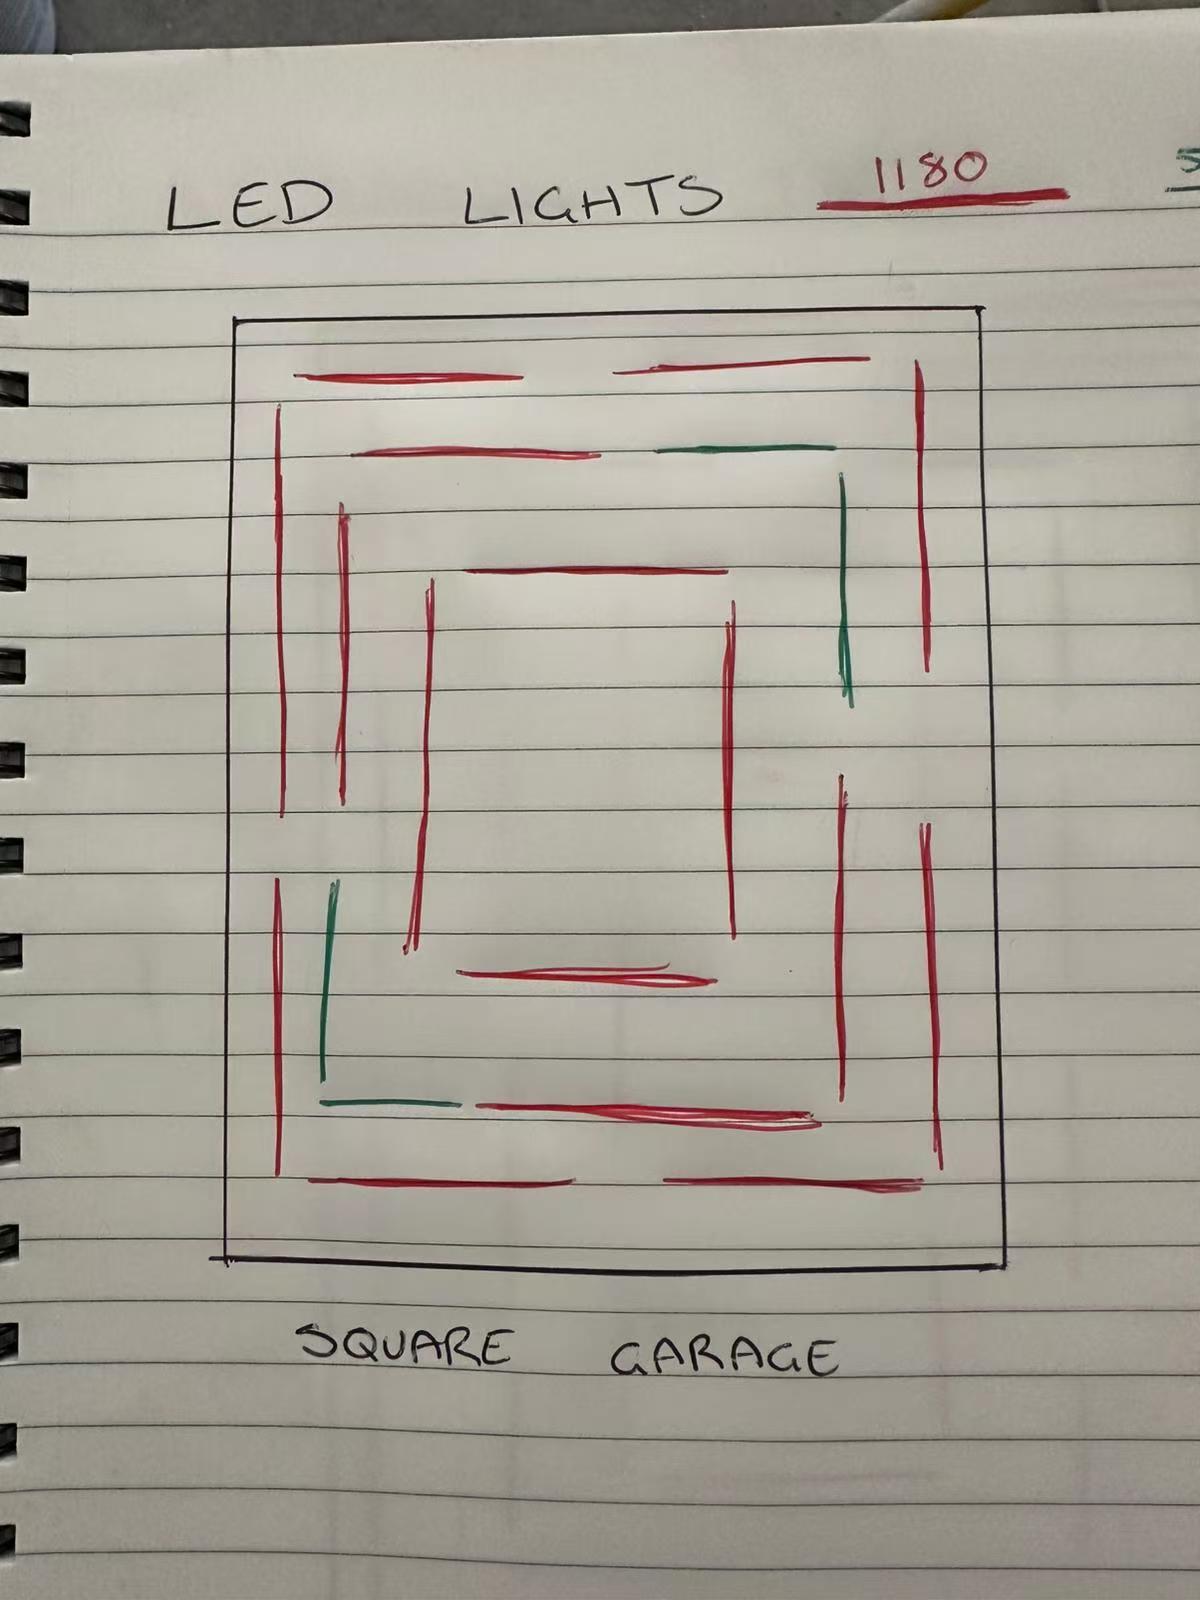 LED LIGHTS 1180
SQUARE GARAGE